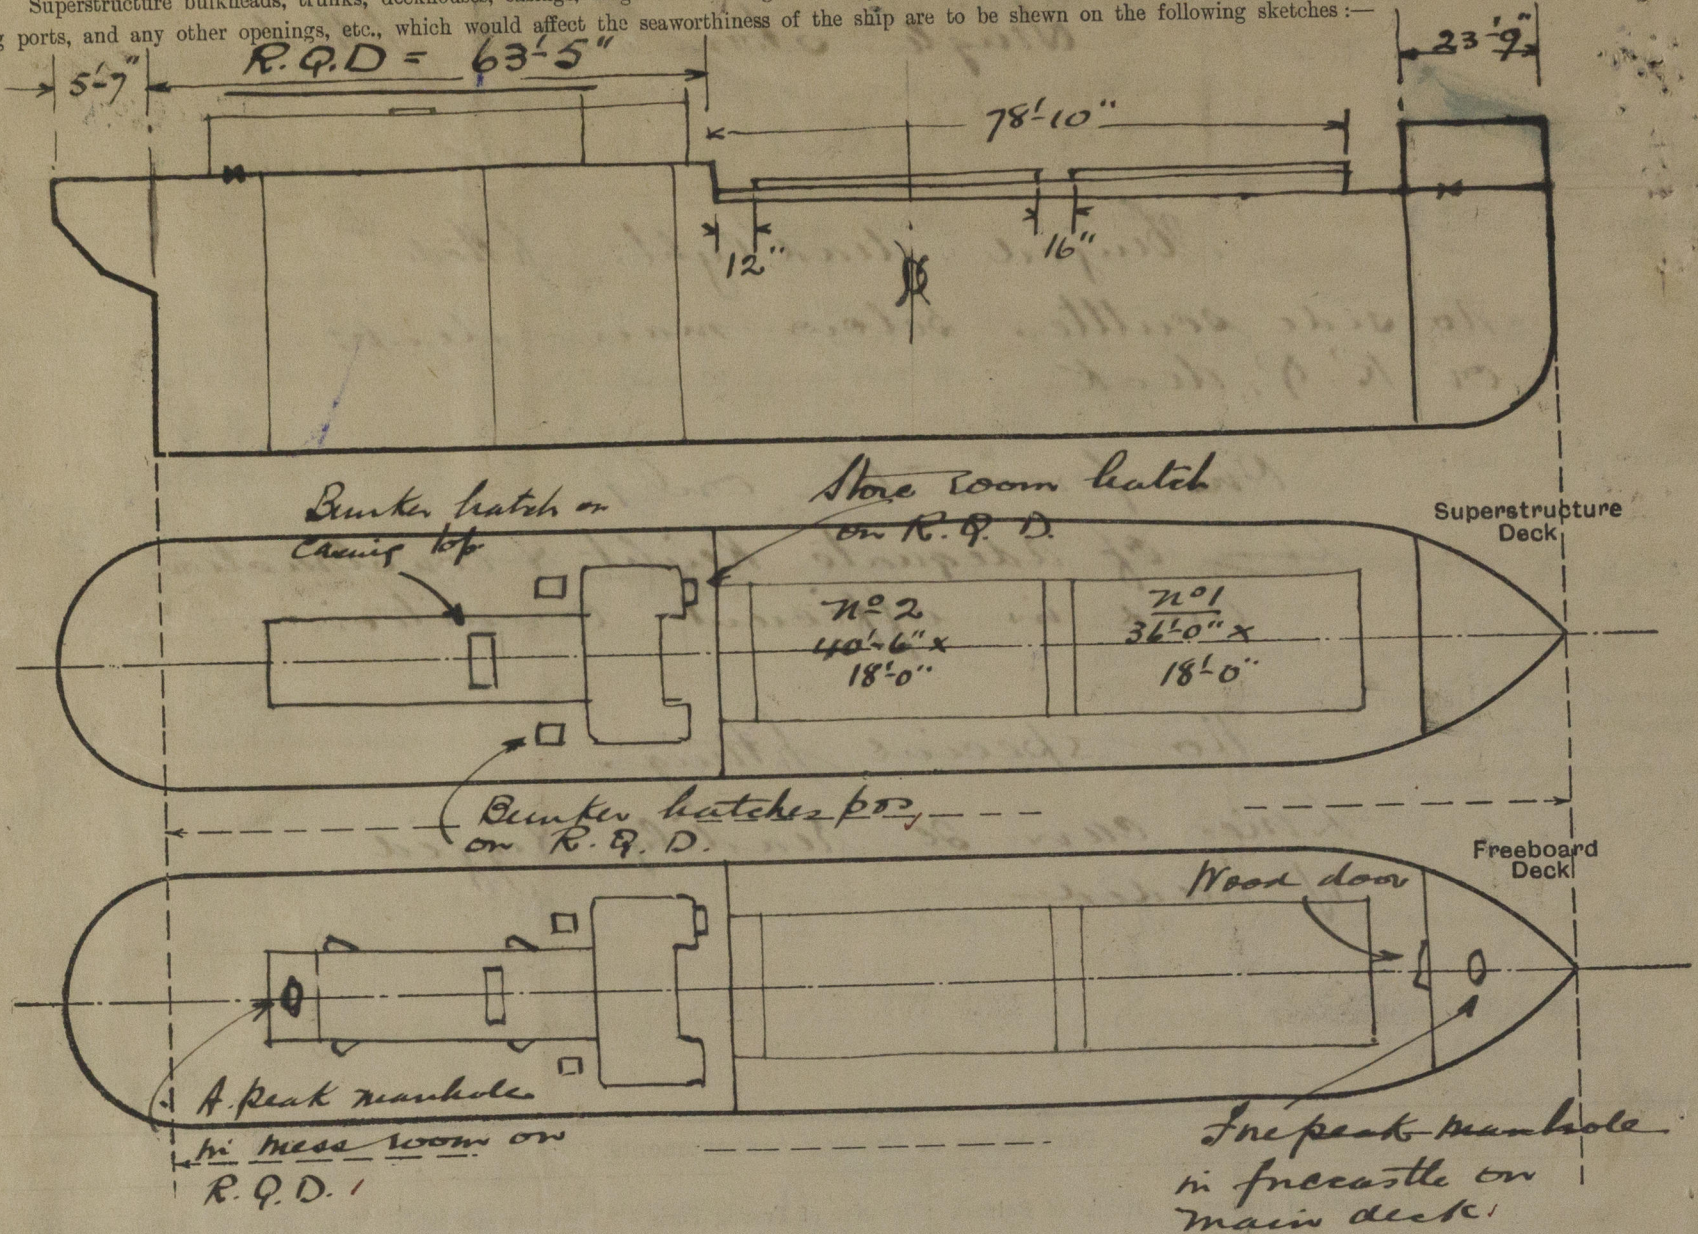 Superstructure bulkheads, trunks, deckhouses, casings,
ports, and any other openings, etc., which would affect the seaworthiness of the ship are to be shewn on the following sketches :—
5'-7"
R.Q.D = 63'-5"
23'-9"
78'-10"
12"
16"
Bunker hatch on
casing top
Store room hatch
on R.Q.D.
Superstructure
Deck
No 2
40'-6" x
18'-0"
No 1
36'-0" x
18'-0"
Bunker hatches p&s,
on R.Q.D.
Freeboard
Deck
Wood door
A. peak manhole
in mess room on
R.Q.D.
Forepeak manhole
in forecastle on
main deck.